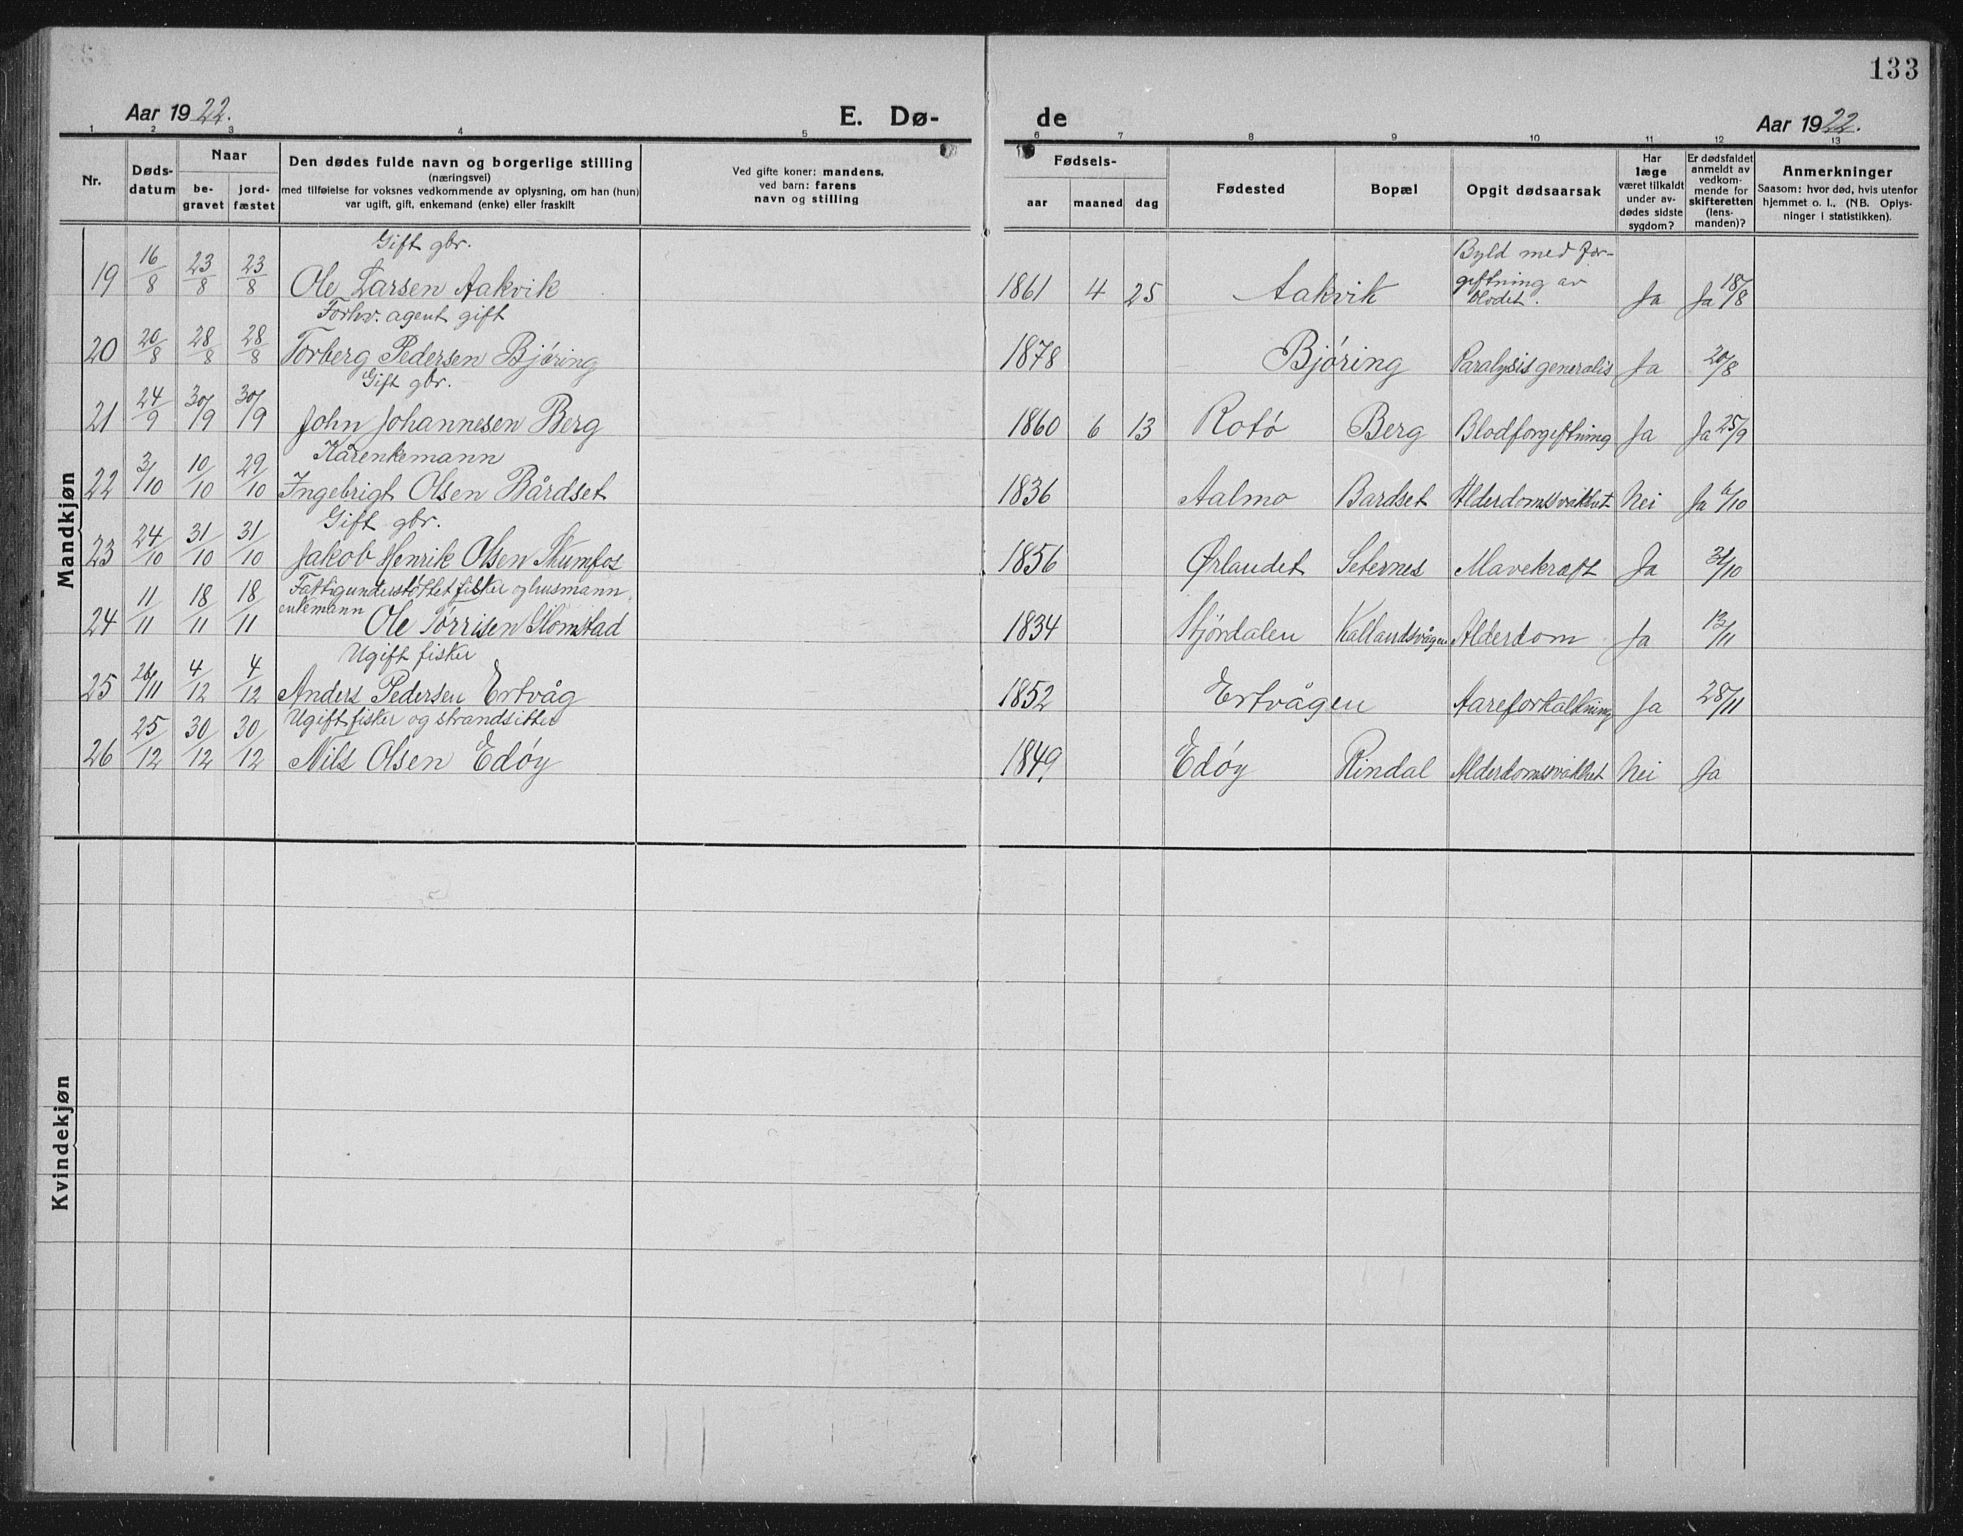 133
Aar 1922.
E. Dø-
de
Aar 1922.
1 2 3 4 5 6 7 8 9 10 11 12 13
Nr.
Døds-
datum
Naar
be-
gravet
jord-
fæstet
Den dødes fulde navn og borgerlige stilling
(næringsvei)
med tilføielse for voksnes vedkommende av oplysning, om han (hun)
var ugift, gift, enkemand (enke) eller fraskilt
Ved gifte koner: mandens,
ved barn: farens
navn og stilling
Fødsels-
aar maaned dag
Fødested
Bopæl
Opgit dødsaarsak
Har
læge
været tilkaldt
under av-
dødes sidste
sygdom?
Er dødsfaldet
anmeldt av
vedkom-
mende for
skifteretten
(lens-
manden)?
Anmerkninger
Saasom: hvor død, hvis utenfor
hjemmet o. l., (NB. Oplys-
ninger i statistikken).
Mandkjøn
Gift gbr.
19 16/8 23/8 23/8 Ole Larsen Aakvik 1861 4 25 Aakvik Byld med for-
giftning av
blodet. Ja Ja 18/8
Forhv. agent gift
20 20/8 28/8 28/8 Torberg Pedersen Bjøring 1878 Bjøring Paralysis generalis Ja 20/8
Gift gbr.
21 24/9 30/9 30/9 John Johannesen Berg 1860 6 13 Rotø Berg Blodforgiftning Ja Ja 25/9
Kårenkemann
22 3/10 10/10 29/10 Ingebrigt Olsen Bårdset 1836 Aalmo Bardset Alderdomssvakhet Nei Ja 6/10
Gift gbr.
23 24/10 31/10 31/10 Jakob Henrik Olsen Skumfos 1856 Ørlandet Seternes Mavekræft Ja 31/10
Fattigunderstøttet fisker og husmann,
enkemann
24 11/11 18/11 18/11 Ole Tørrisen Slomstad 1834 Stjørdalen Kallandsvågen Alderdom Ja 13/11
Ugift fisker
25 26/11 4/12 4/12 Anders Pedersen Ertvåg 1852 Ertvågen Aareforkalkning Ja 28/11
Ugift fisker og strandsitter
26 25/12 30/12 30/12 Nils Olsen Edøy 1849 Edøy Rindal Alderdomssvakhet Nei Ja
Kvindekjøn